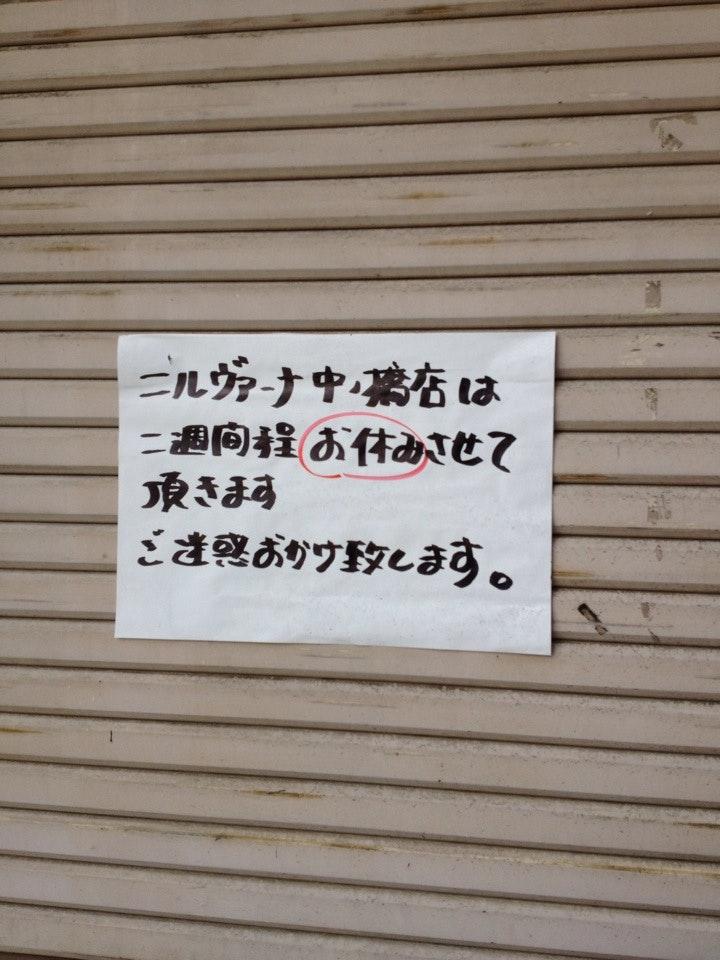 ニルヴァーナ中ノ橋店は
二週間程お休みさせて
頂きます
ご迷惑おかけ致します。